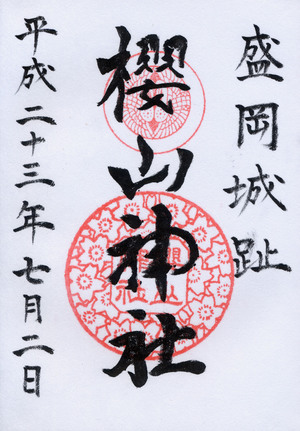 盛岡城趾
櫻山神社
平成二十三年七月二日